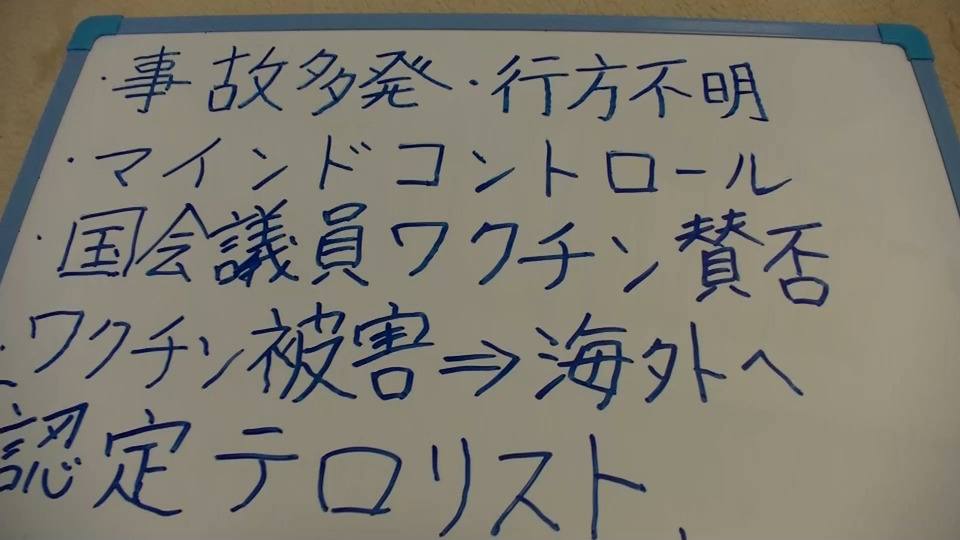 ・事故多発・行方不明
・マインドコントロール
・国会議員ワクチン賛否
・ワクチン被害⇒海外へ
認定テロリスト